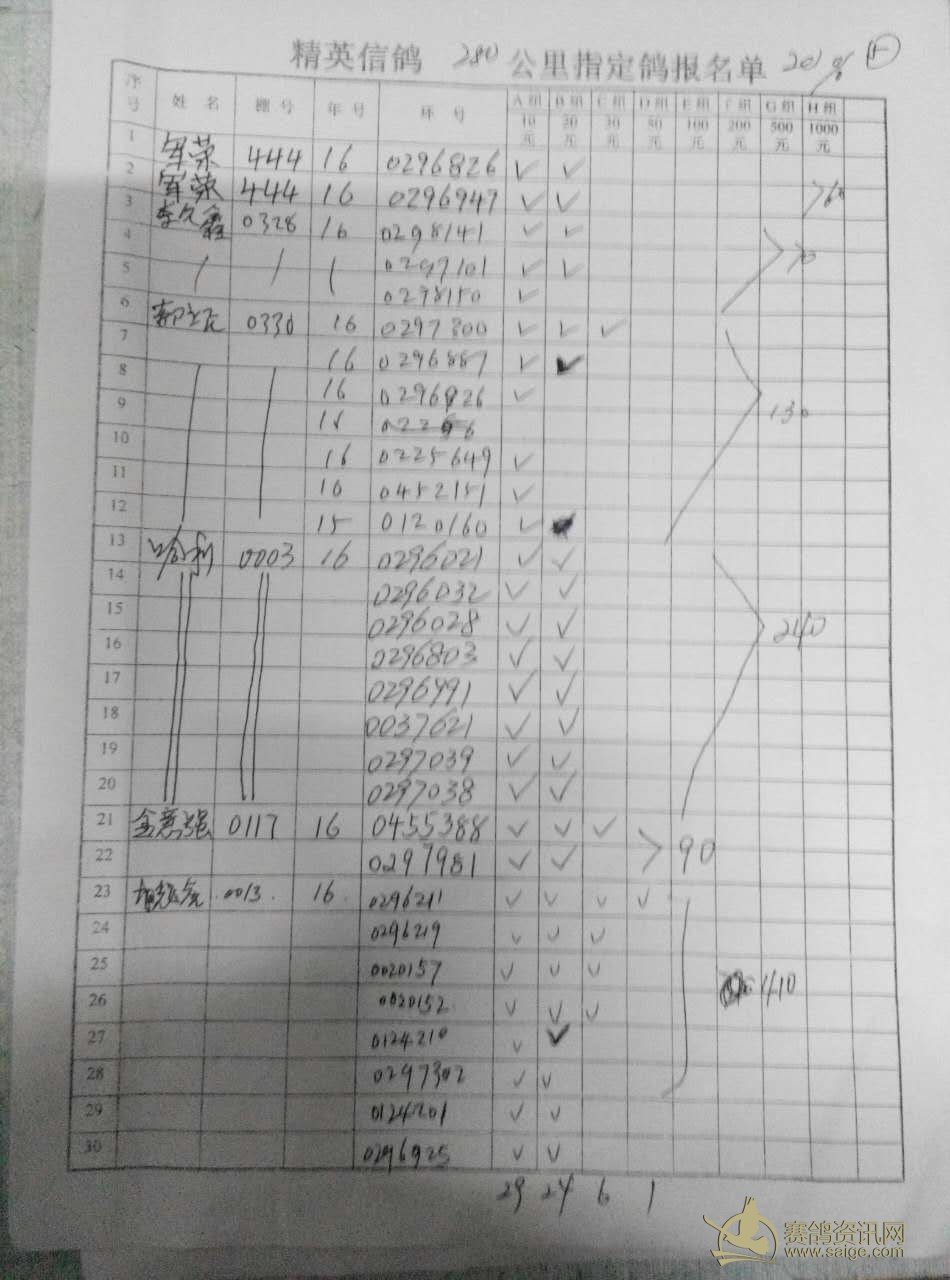 精英信鸽 280 公里指定鸽报名单
序号 姓 名 棚 号 年 号 环 号 A组 B组 C组 D组 E组 F组 G组 H组
10元 20元 30元 50元 100元 200元 500元 1000元
1 军荣 444 16 0296826 ✓ ✓
2 军荣 444 16 0296947 ✓ ✓ >60
3 李久鑫 0328 16 0298141 ✓ ✓
4 / / / 0297101 ✓ ✓ 70
5 0298150 ✓
6 0330 16 0297300 ✓ ✓ ✓
7 16 0296887 ✓ ✓
8 16 0296826 ✓
9 130
10 16 0225649 ✓
11 16 0452151 ✓
12 15 0120160 ✓
13 哈利 0003 16 0296021 ✓ ✓
14 0296032 ✓ ✓
15 0296028 ✓ ✓ 240
16 0296803 ✓ ✓
17 0296991 ✓ ✓
18 0037621 ✓ ✓
19 0297039 ✓ ✓
20 0297038 ✓ ✓
21 金意强 0117 16 0455388 ✓ ✓ ✓
22 0297981 ✓ ✓ > 90
23 0013 16 0296211 ✓ ✓ ✓ ✓
24 0296219 ✓ ✓ ✓
25 0020157 ✓ ✓ ✓
26 0020152 ✓ ✓ ✓ 410
27 0124210 ✓ ✓
28 0297302 ✓ ✓
29 0124201 ✓ ✓
30 0296925 ✓ ✓
29 24 6 1
赛鸽资讯网
www.saige.com